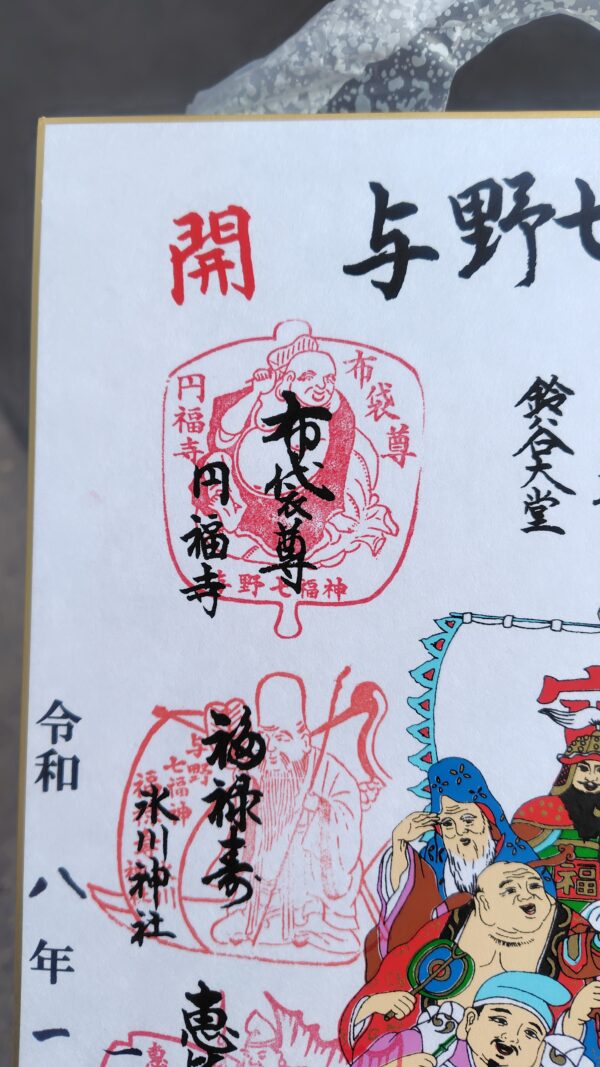 与野七
開
布袋尊
円福寺
布袋尊
円福寺
与野七福神
鈴谷大堂
福禄寿
氷川神社
与野
七福神
恵
恵
福
令和 八年 一